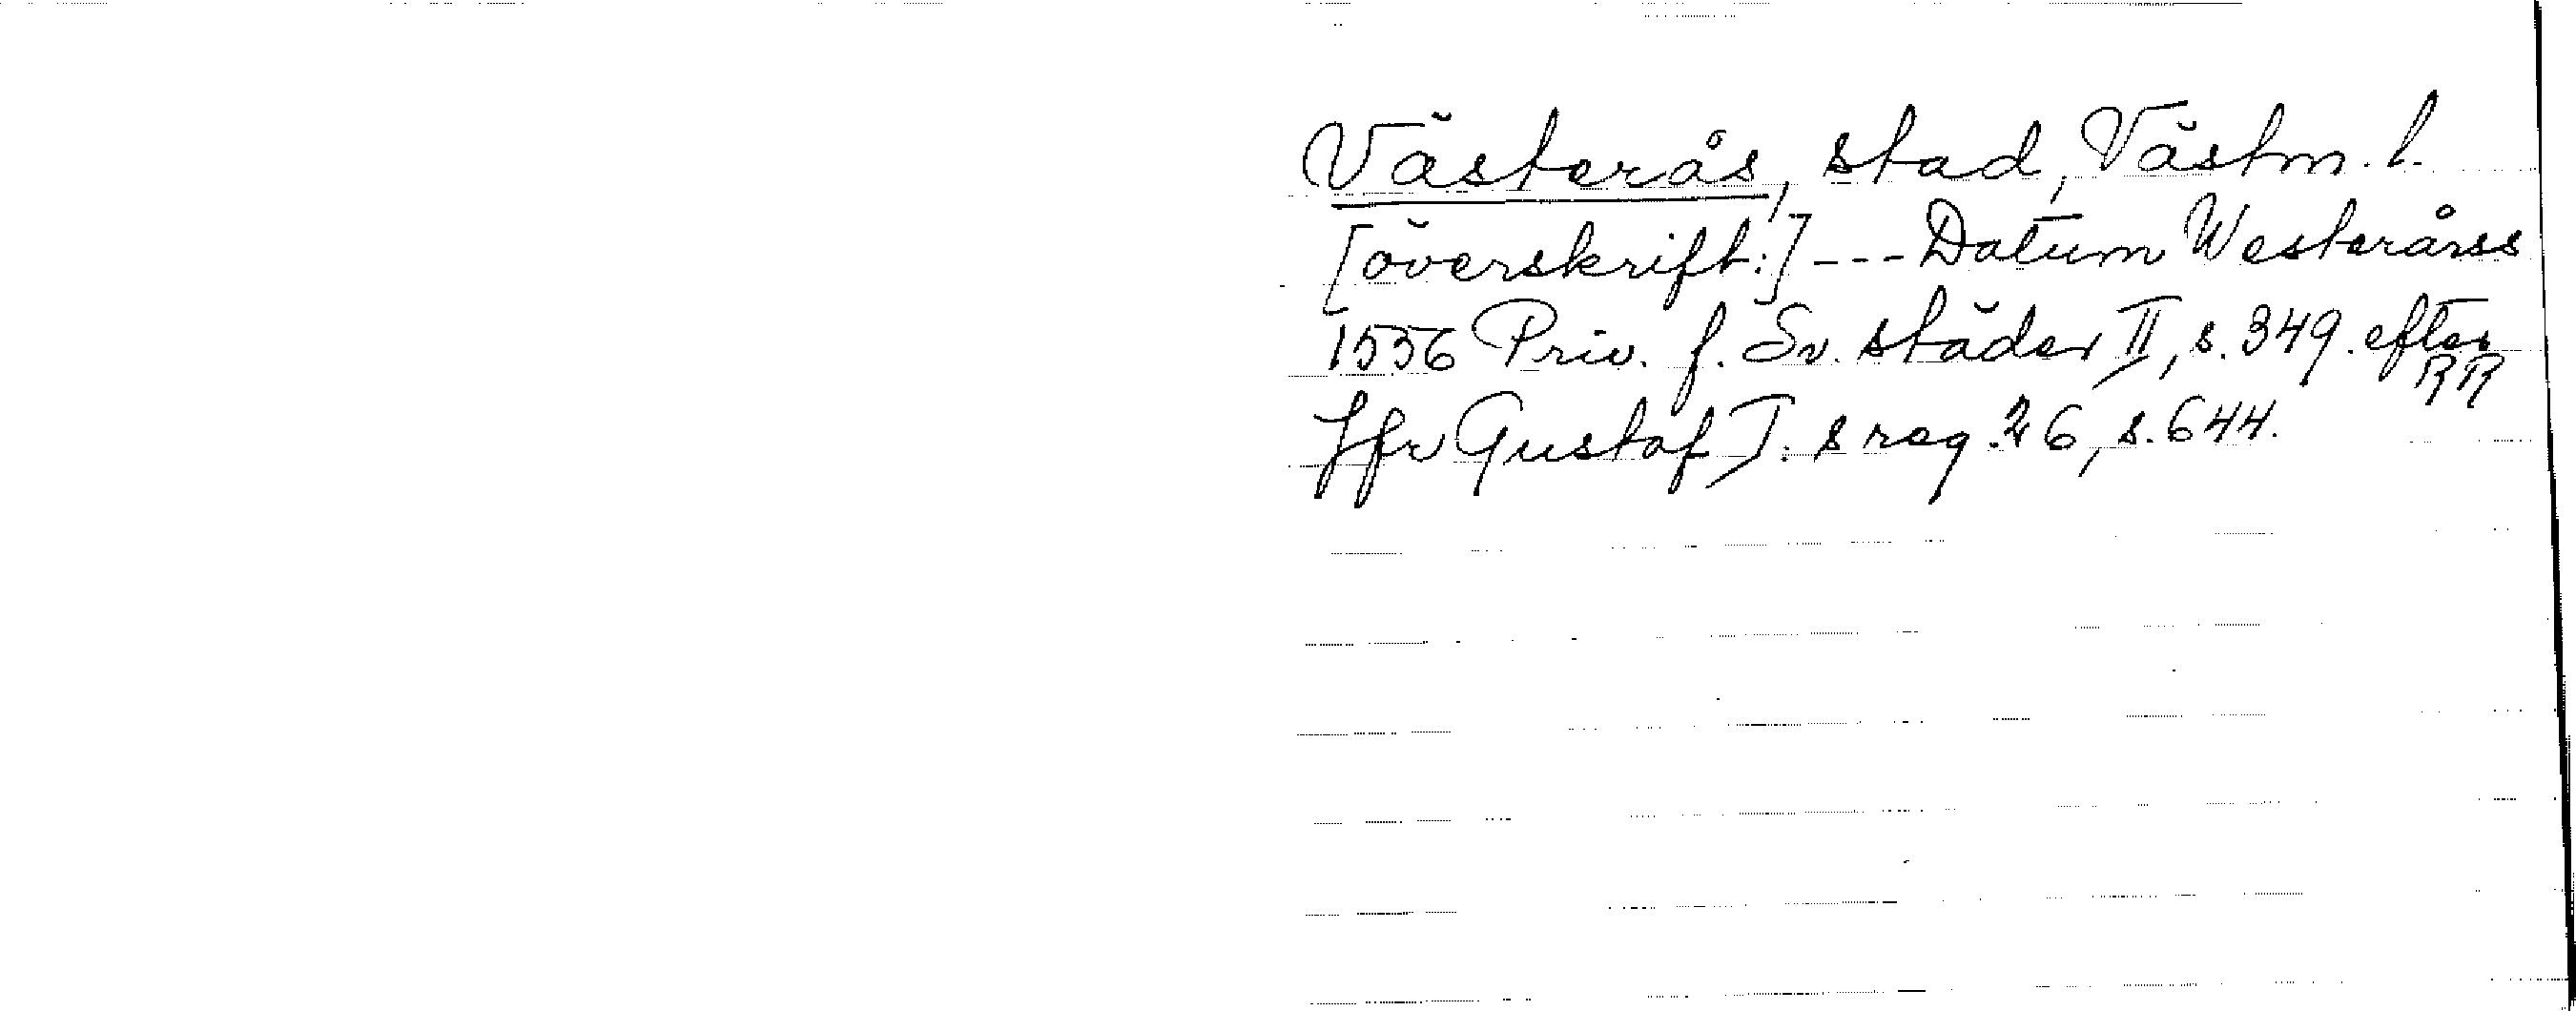 Västerås, stad, Västm. l.
[överskrift:] --- Datum Westerårss
1556 Priv. f. Sv. städer II, s. 349. efter RR
Jfr Gustaf I:s reg. 26, s. 644.